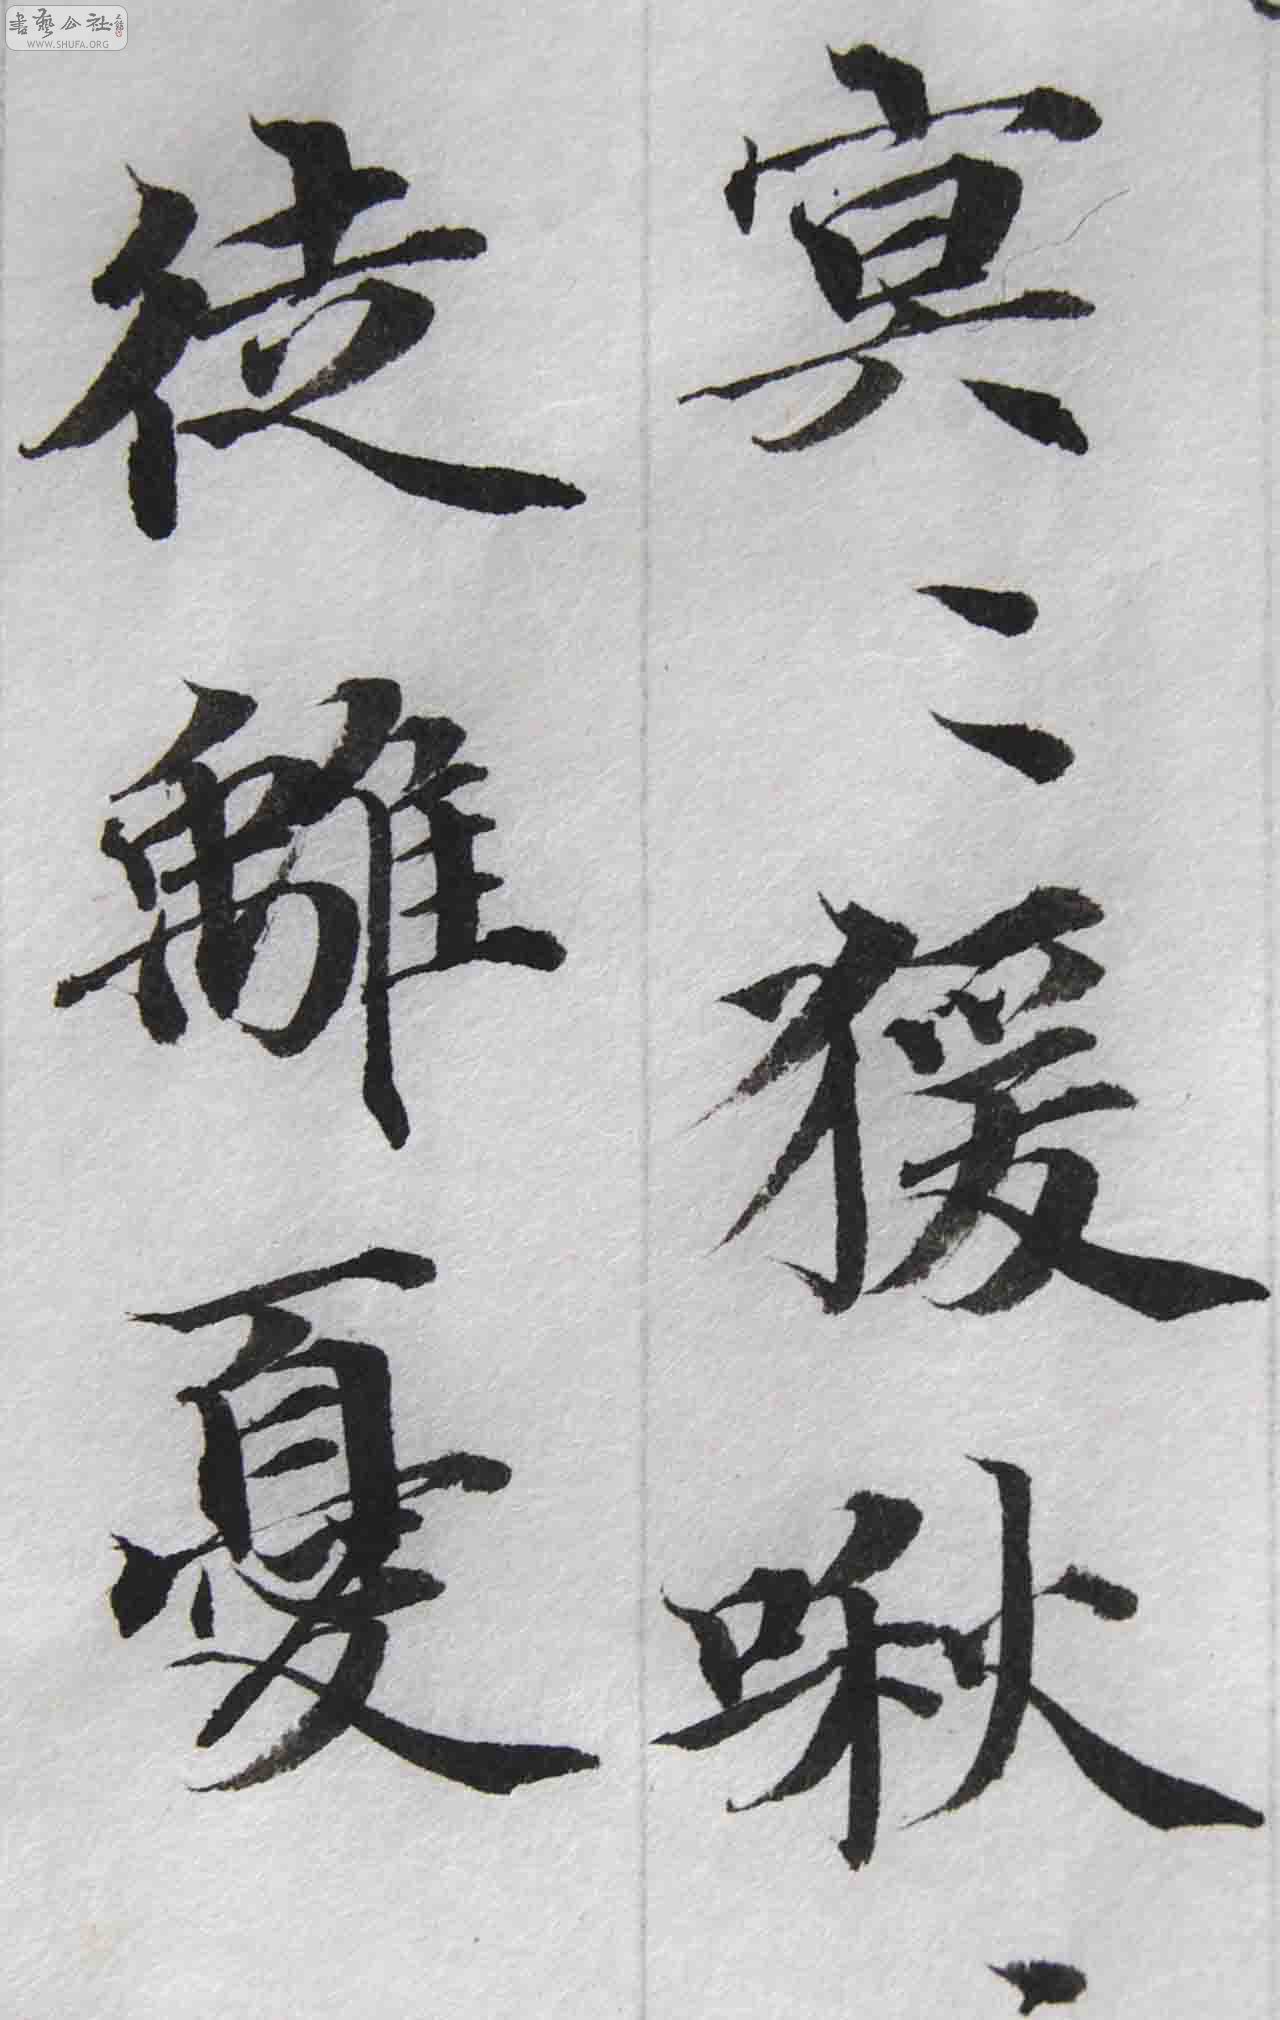 冥〻猨啾〻
徒離憂
書藝公社
WWW.SHUFA.ORG